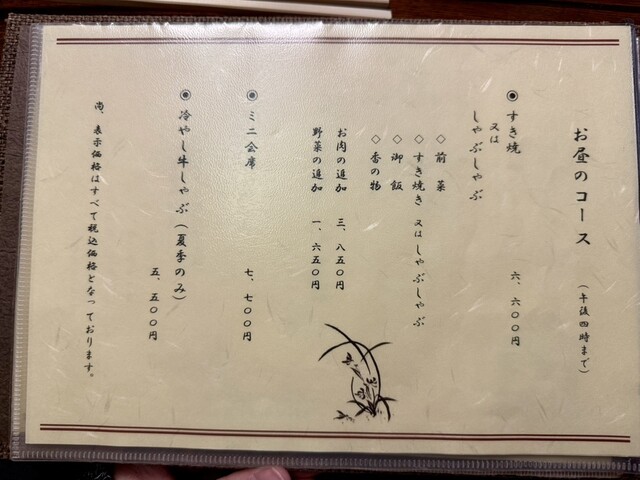 お昼のコース （午後四時まで）
◉ すき焼
又は
しゃぶしゃぶ 六、六〇〇円
◇ 前菜
◇ すき焼き 又はしゃぶしゃぶ
◇ 御飯
◇ 香の物
お肉の追加 三、八五〇円
野菜の追加 一、六五〇円
◉ ミニ会席 七、七〇〇円
◉ 冷やし牛しゃぶ（夏季のみ）
五、五〇〇円
尚、表示価格はすべて税込価格となっております。